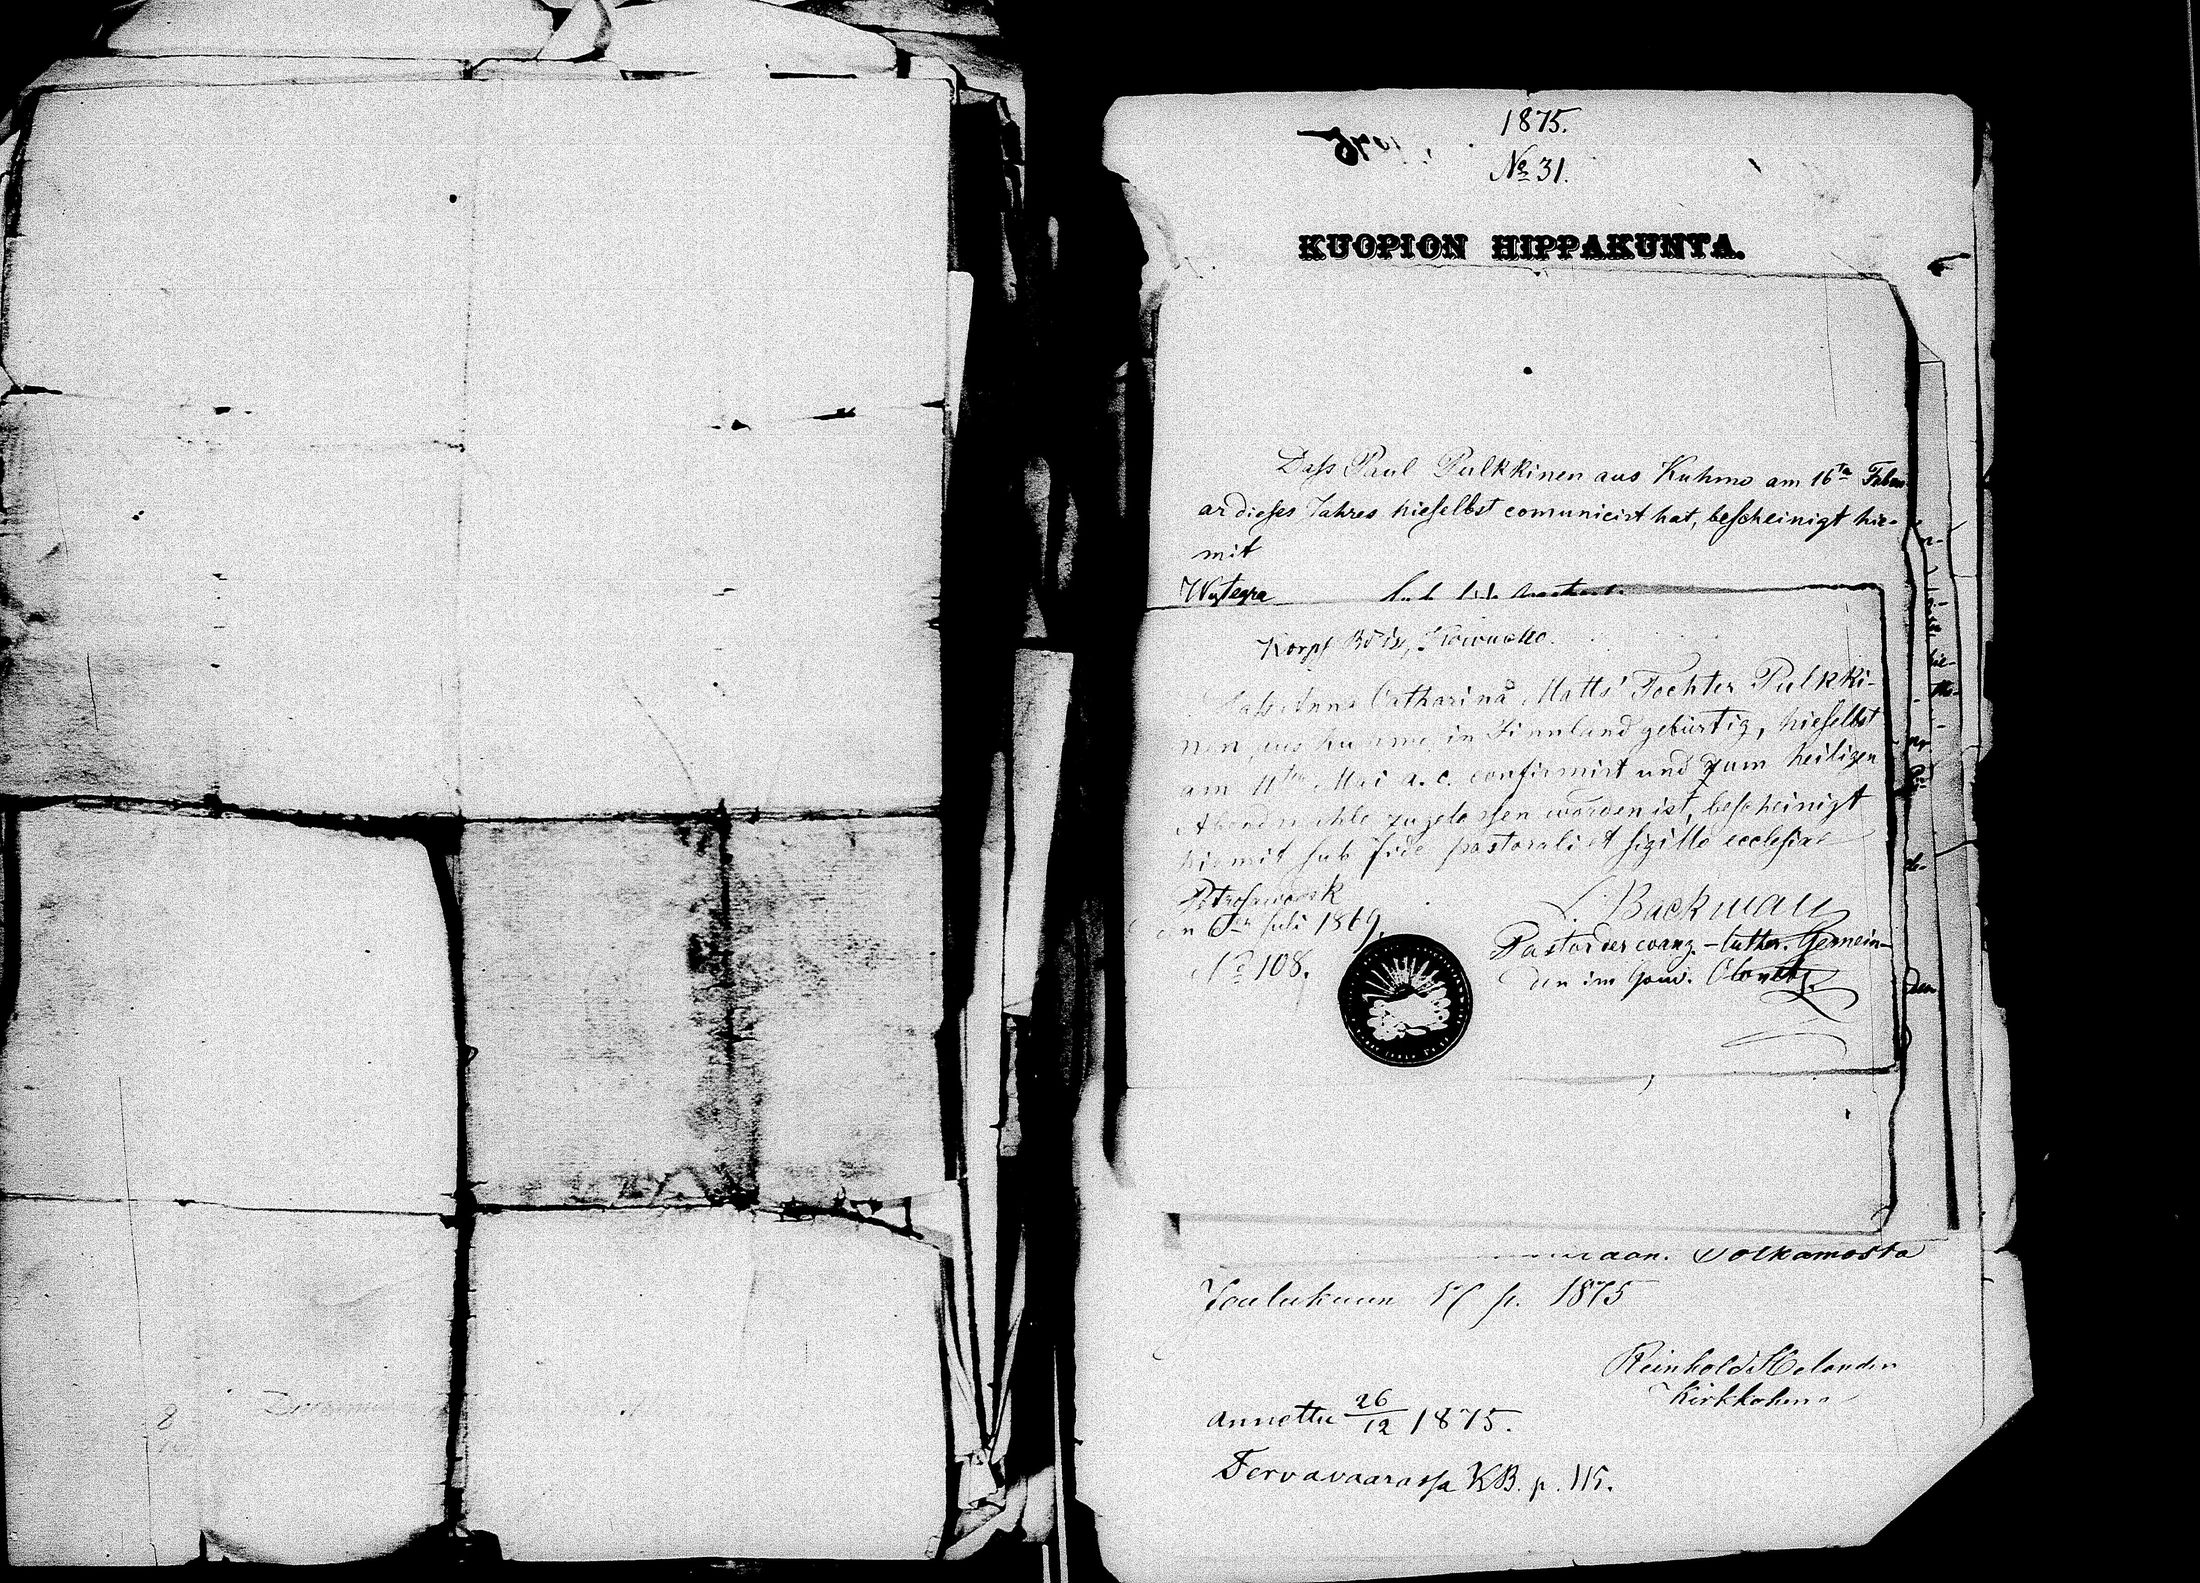 1875.
No 31.
KUOPION HIPPAKUNTA.
Daſs Paul Pulkkinen aus Kuhmo am 16ten Febru-
ar dieſes Jahres hieſelbst comunicirt hat, beſcheinigt hie-
mit
Wytegra
Daſs Anna Catharina Matts' Tochter Pulkki-
nen, aus Kuhmo in Finnland gebürtig, hieſelbst
am 11ten Mai a. c. confirmirt und zum heiligen
Abendmahle zugelaſsen worden ist, beſcheinigt
hiemit ſub fide pastorali et ſigillo ecclesiae
Petroſawodsk
den 6ten Juli 1869.
No 108.
Backman
Pastor der evang.-luther. Gemein-
den im Gouv. Olonetz.
Sotkamosta
Joulukuun p. 1875
Reinhold Molander
Kirkkoherra
Annettu 26/12 1875.
Tervavaarassa KB. p. 115.